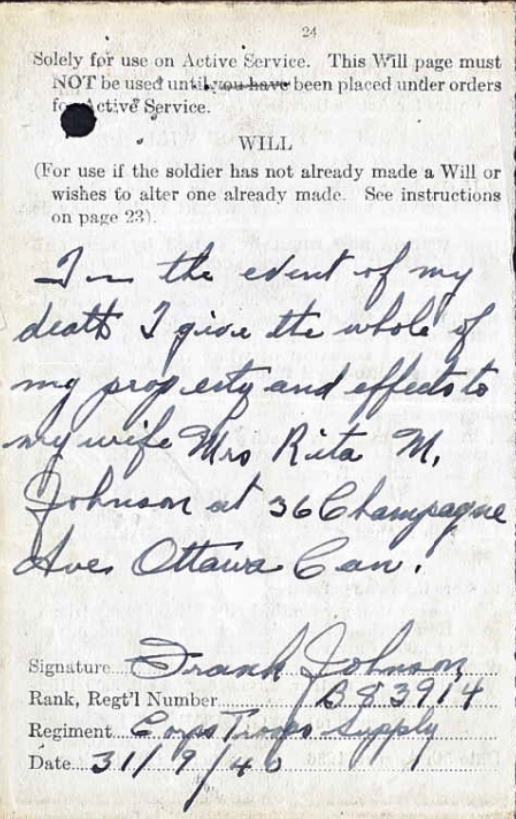 24
Solely for use on Active Service. This Will page must
NOT be used until you have been placed under orders
for Active Service.
WILL
(For use if the soldier has not already made a Will or
wishes to alter one already made. See instructions
on page 23).
In the event of my
death I give the whole of
my property and effects to
my wife Mrs Rita M.
Johnson at 36 Champagne
Ave, Ottawa Can.
Signature Frank Johnson
Rank, Regt'l Number B83914
Regiment Corps Troops Supply
Date 31/9/40